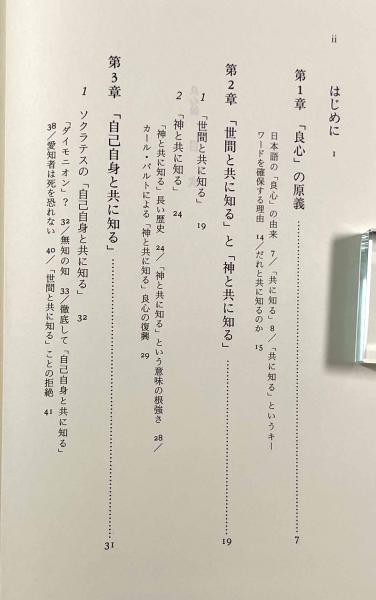 ii
はじめに 1
第1章 「良心」の原義……………………7
日本語の「良心」の由来 7/「共に知る」 8/「共に知る」というキー
ワードを確保する理由 14/だれと共に知るのか 15
第2章 「世間と共に知る」と「神と共に知る」……………………19
1 「世間と共に知る」 19
2 「神と共に知る」 24
「神と共に知る」長い歴史 24/「神と共に知る」という意味の根強さ 28/
カール・バルトによる「神と共に知る」良心の復興 29
第3章 「自己自身と共に知る」……………………31
1 ソクラテスの「自己自身と共に知る」 32
「ダイモニオン」? 32/無知の知 33/徹底して「自己自身と共に知る」
38/愛知者は死を恐れない 40/「世間と共に知る」ことの拒絶 41